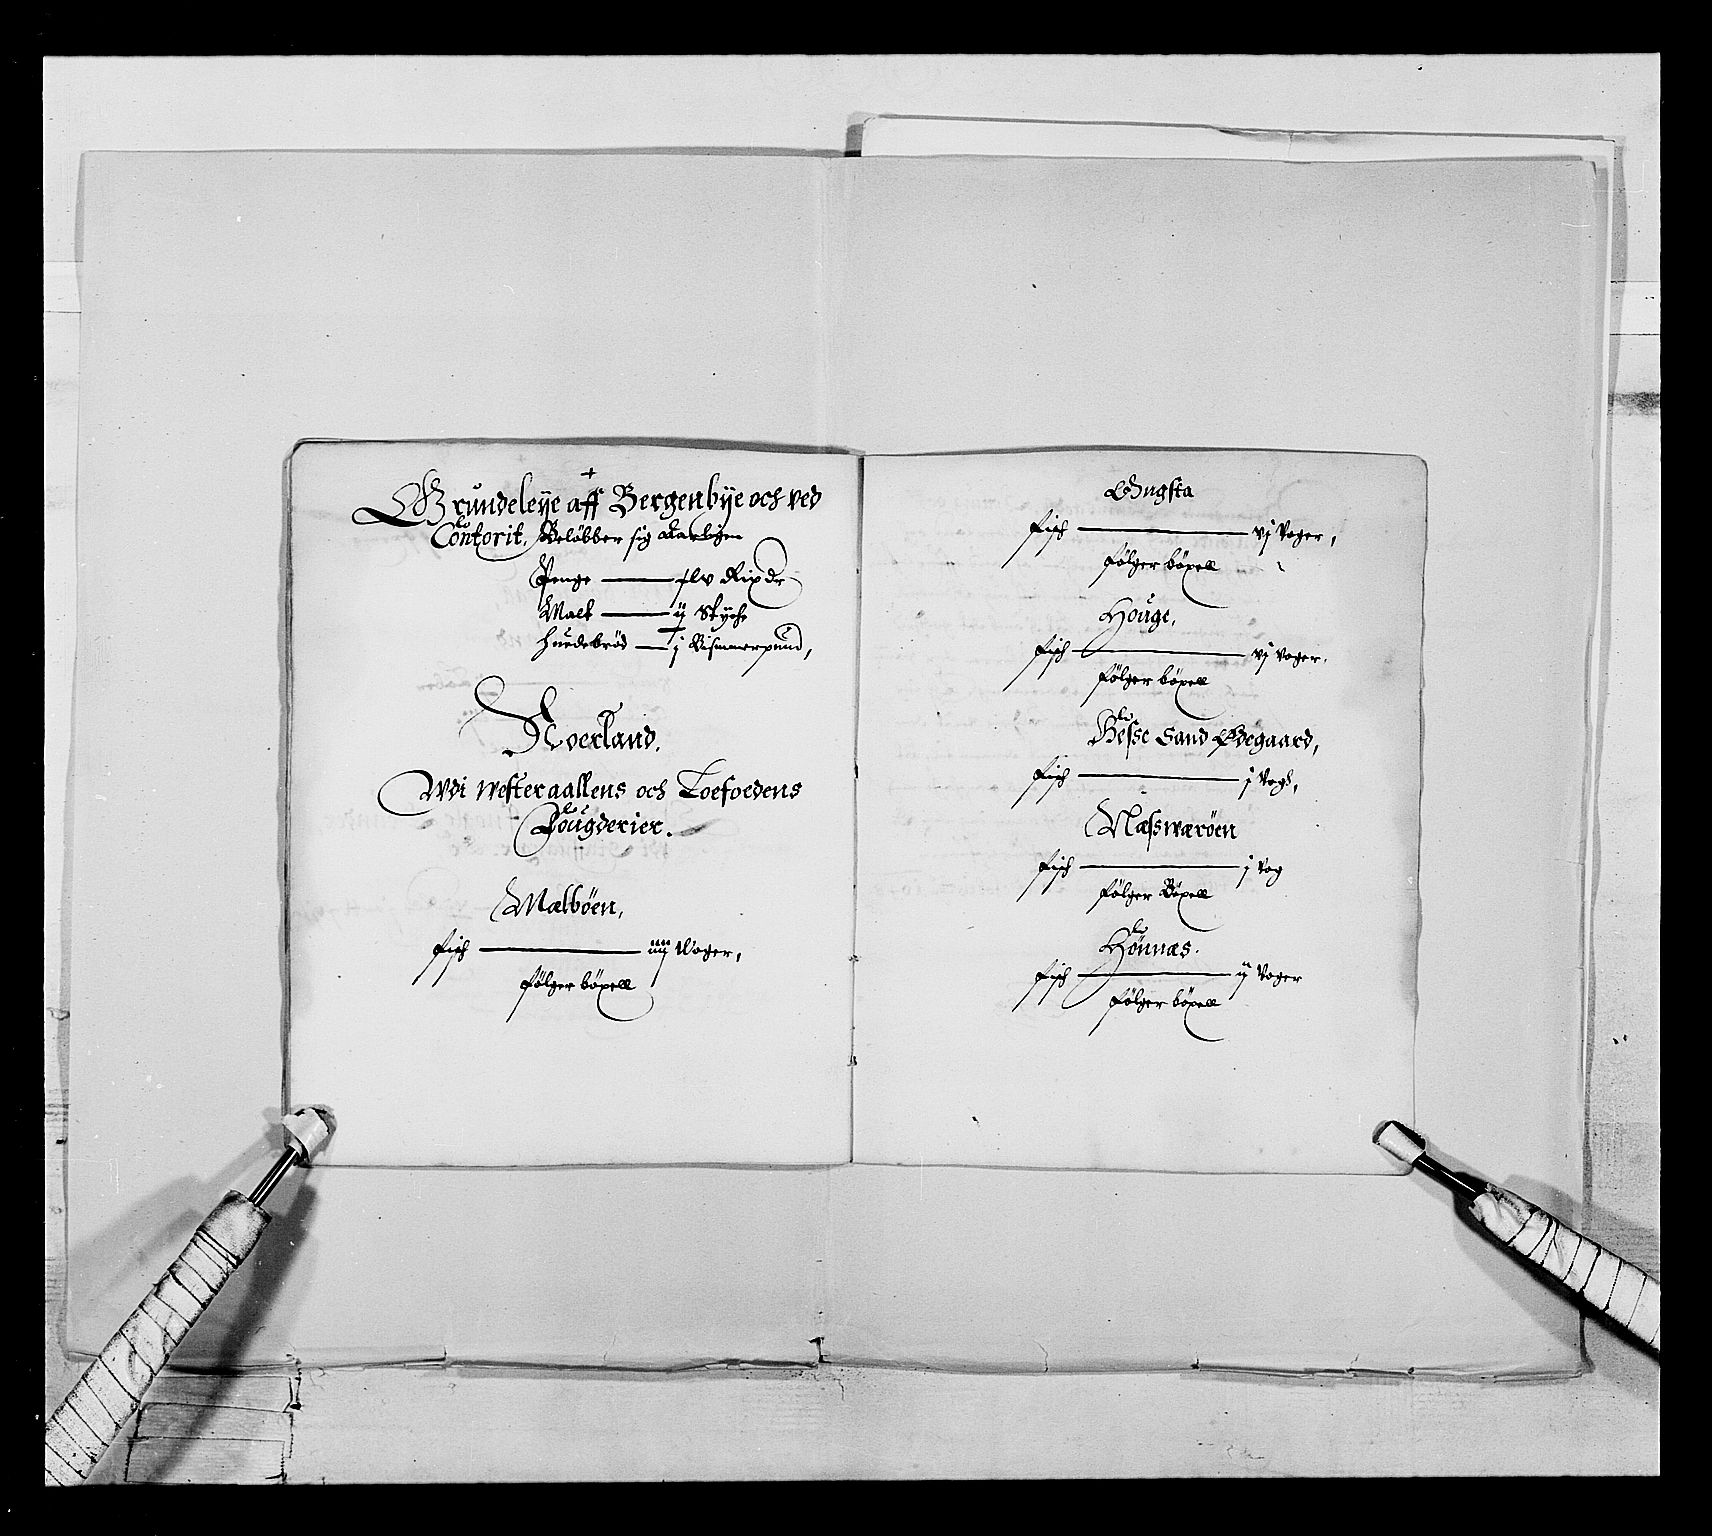 +
Grundeleÿe aff Bergenbÿe och ved
Contorit. Beløbber sig Aarligen
Penge — xlv Rixdr
Malt — ij Stÿche
huedebrød — j Bismerpund,
Norland.
Wdi Westeraallens och Loefoedens
Fougderier.
Mælböen,
fisch — iiij Woger,
følger böxell
Gugsta
fisch — vj Voger,
følger böxell
Houge,
fisch — vj Voger.
følger böxell
Hesse Sand Ødegaard,
fisch — j Vog,
Næsswæröen
fisch — j Vog
følger Böxell
Hönnæs.
fisch — ij Voger
følger böxell